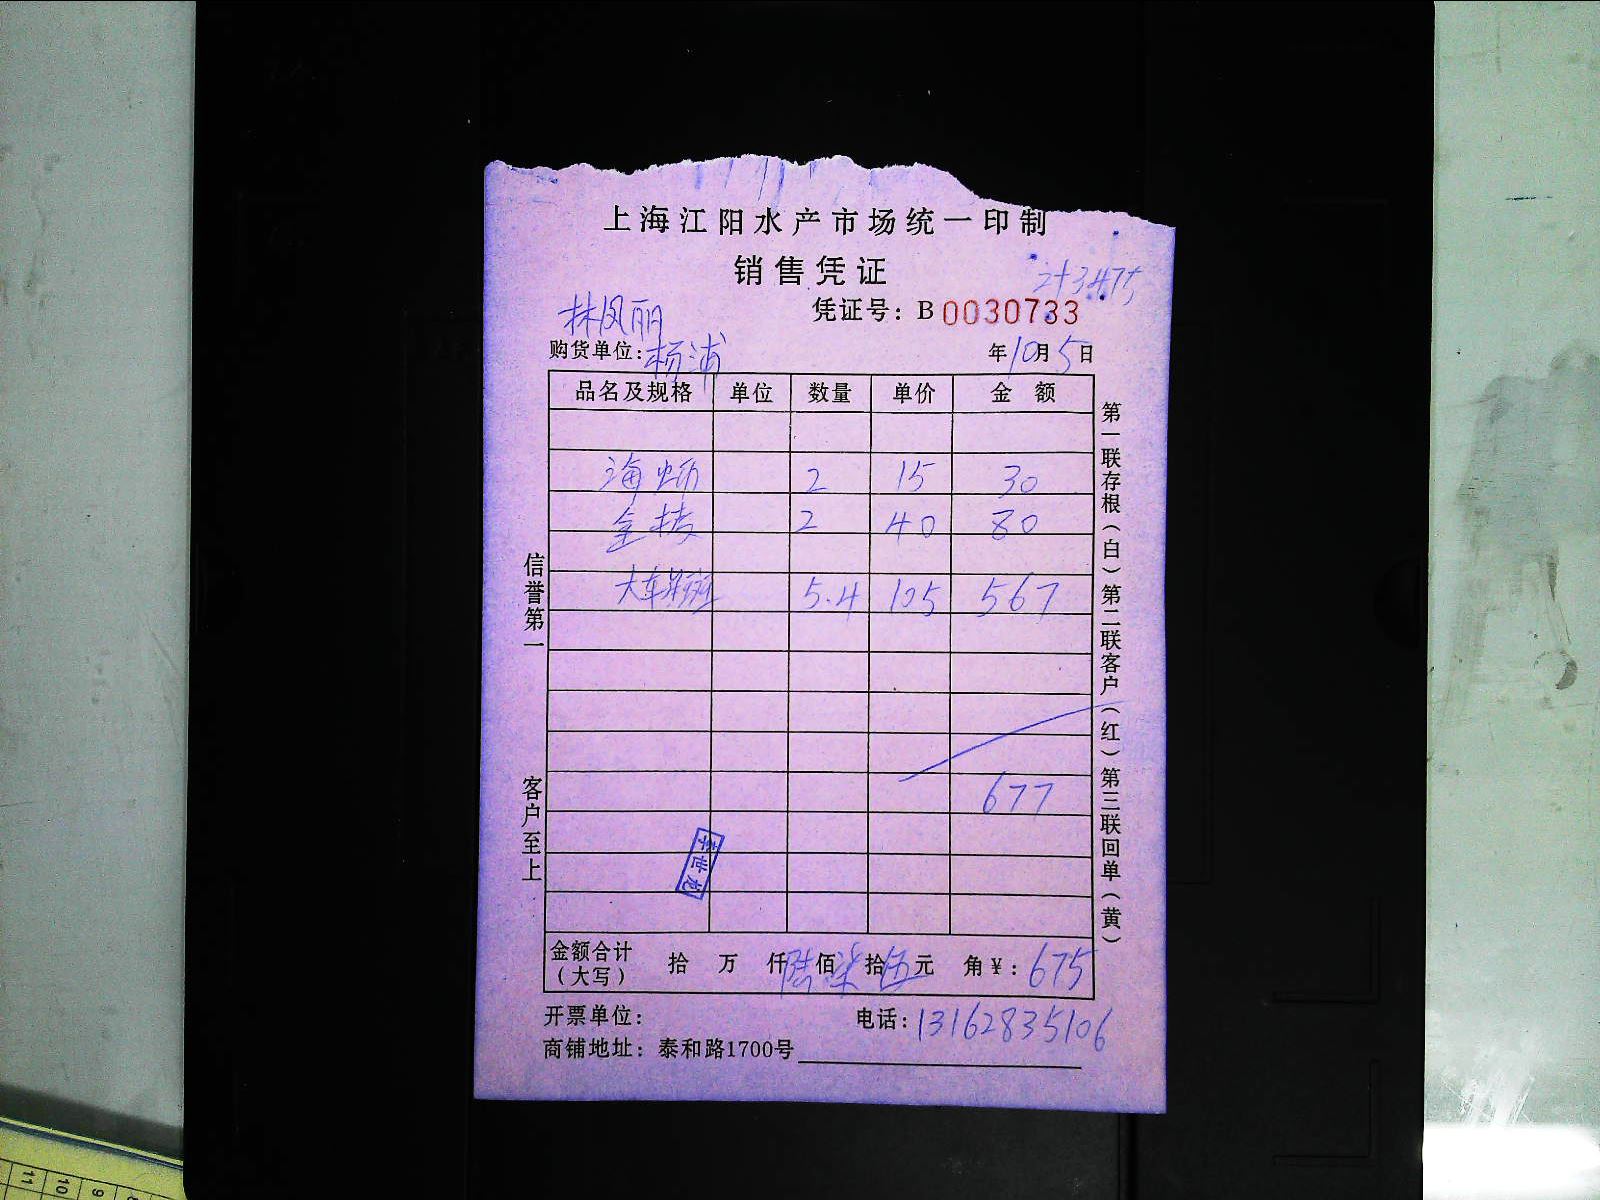 上海江阳水产市场统一印制
销售凭证
凭证号：B 0030733
林凤丽
购货单位：杨浦 年10月5日
品名及规格 单位 数量 单价 金额
海蛎 2 15 30
金 2 40 80
大 斑 5.4 105 567
677
李世龙
金额合计（大写） 拾 万 仟陆佰柒拾伍元 角￥：675
开票单位：
电话：13162835106
商铺地址：泰和路1700号
信誉第一
客户至上
第一联存根（白）第二联客户（红）第三联回单（黄）
11
10
9